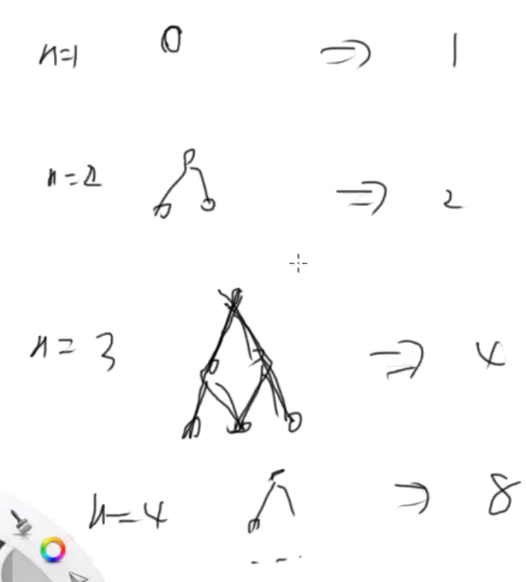 n=1 ⇒ 1
n=2 ⇒ 2
n=3 ⇒ 4
n=4 ⇒ 8